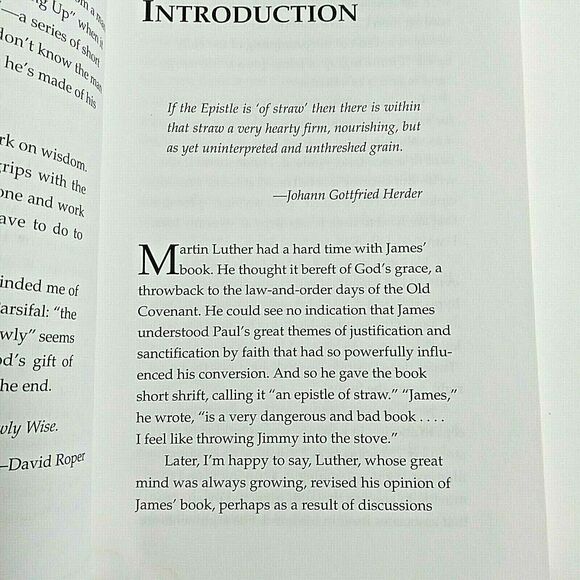 ng Up" when it
—a series of short
don't know the man
he's made of his
rk on wisdom.
grips with the
one and work
ave to do to
inded me of
arsifal: "the
wly" seems
od's gift of
he end.
wly Wise.
—David Roper
INTRODUCTION
If the Epistle is 'of straw' then there is within
that straw a very hearty firm, nourishing, but
as yet uninterpreted and unthreshed grain.
—Johann Gottfried Herder
Martin Luther had a hard time with James'
book. He thought it bereft of God's grace, a
throwback to the law-and-order days of the Old
Covenant. He could see no indication that James
understood Paul's great themes of justification and
sanctification by faith that had so powerfully influ-
enced his conversion. And so he gave the book
short shrift, calling it "an epistle of straw." "James,"
he wrote, "is a very dangerous and bad book . . . .
I feel like throwing Jimmy into the stove."
Later, I'm happy to say, Luther, whose great
mind was always growing, revised his opinion of
James' book, perhaps as a result of discussions